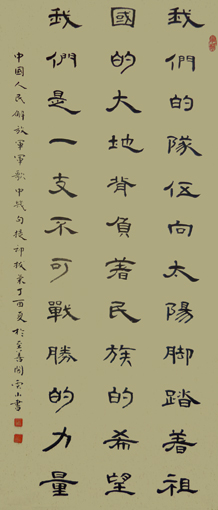 我們的隊伍向太陽脚踏着祖
國的大地背負着民族的希望
我們是一支不可戰勝的力量
中國人民解放軍軍歌中丁酉夏於山書